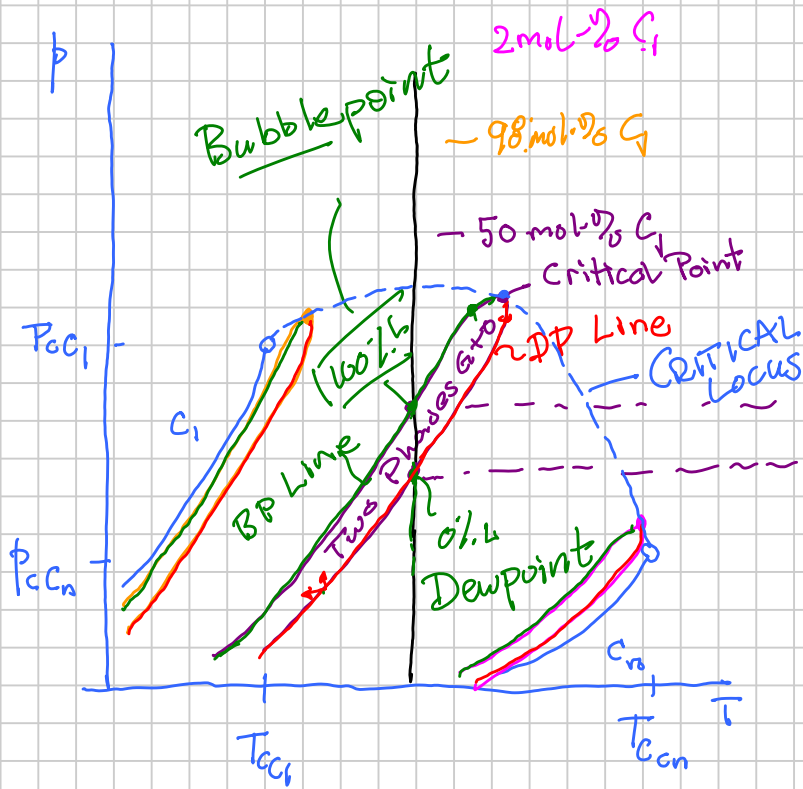 2 mol-% C₁
P
Bubblepoint
98 mol-% C₁
50 mol-% C₁
Critical Point
PcC₁
100%L
DP Line
CRITICAL
LOCUS
C₁
Two Phases G+O
BP Line
0%L
PcCn
Dewpoint
Cn
T
TcC₁
TcCn